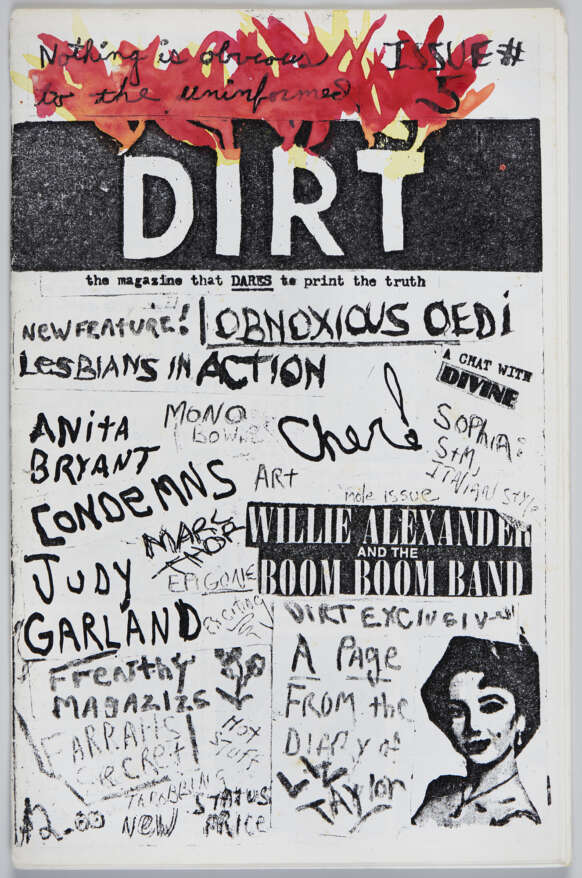 Nothing is obvious
to the uninformed
ISSUE #
5
DIRT
the magazine that DARES to print the truth
NEW FEATURE!
OBNOXIOUS OEDI
LESBIANS IN ACTION
A CHAT WITH
DIVINE
ANITA
BRYANT
CONDEMNS
JUDY
GARLAND
MONO
Cher!
SOPHIA:
S+M,
ITALIAN STYLE
ART
MARC
THOR
EPIGONE
EXCITING
mole issue
WILLIE ALEXANDER
AND THE
BOOM BOOM BAND
DIRT EXCLUSIVE
A PAGE
FROM the
DIARY of
LIZ
TAYLOR
MAGAZIZS
FARRAHS
SECRET
HOT
STUFF
THROBBING
STATUS
$2.00
NEW PRICE